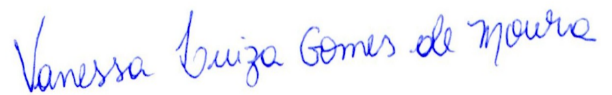 Vanessa Luiza Gomes de Moura